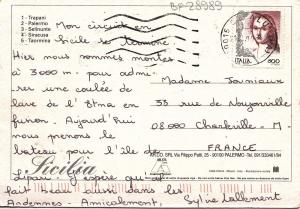 BF28989
1 - Trapani
2 - Palermo
3 - Selinunte
4 - Siracusa
5 - Taormina
Mon circuit en
Sicile se termine.
Hier nous sommes montés
à 3000 m. pour admi-
rer une coulée de
lave de l'Etna en
fusion. Aujourd'hui
nous prenons le
bateau pour l'île de
Lipari. J'espère qu'il
fait beau aussi dans les
Ardennes. Amicalement,
Sylvie Lallement
ITALIA
800
Madame Jouniaux
33 rue de Nouzonville
08000 Charleville - M
FRANCE
Sicilia
SRL Via Filippo Patti, 25 - 90100 PALERMO - Tel. 091/533461/84